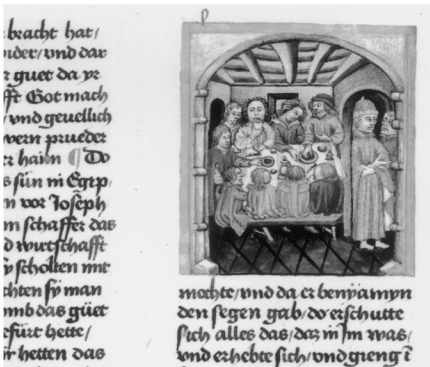 bracht hat/
vnd dar
guet da
Got mach
vnd geuellich
ern prueder
er haim ¶ Do
sün in Egip/
n vor Joseph
m schaffer das
d wurtschafft
sy scholten mit
chten sy man
vmb das güet
efürt hette/
hetten das
mochte/vnd da er benyamyn
den segen gab/do erschutte
sich alles das/daz in jm was/
vnd erhebte sich/vnd gieng